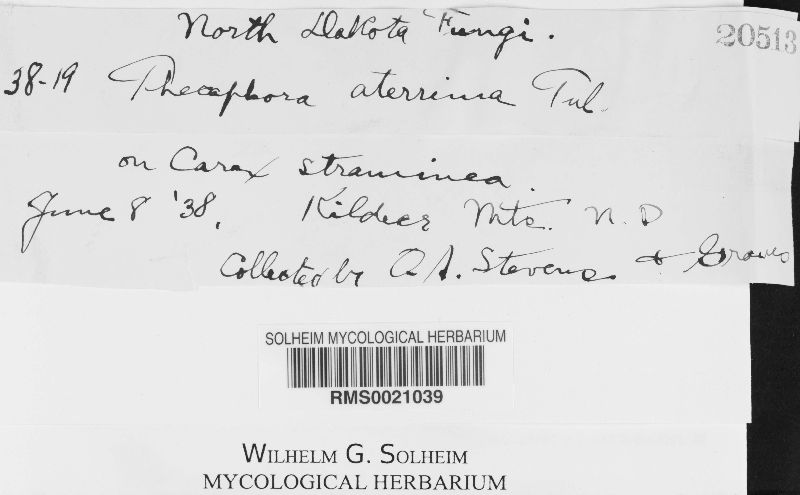 North Dakota Fungi.
20513
38-19 Thecaphora aterrima Tul.
on Carex straminea.
June 8 '38, Kildeer Mts. N. D
Collected by O. A. Stevens & Graves
SOLHEIM MYCOLOGICAL HERBARIUM
RMS0021039
WILHELM G. SOLHEIM
MYCOLOGICAL HERBARIUM